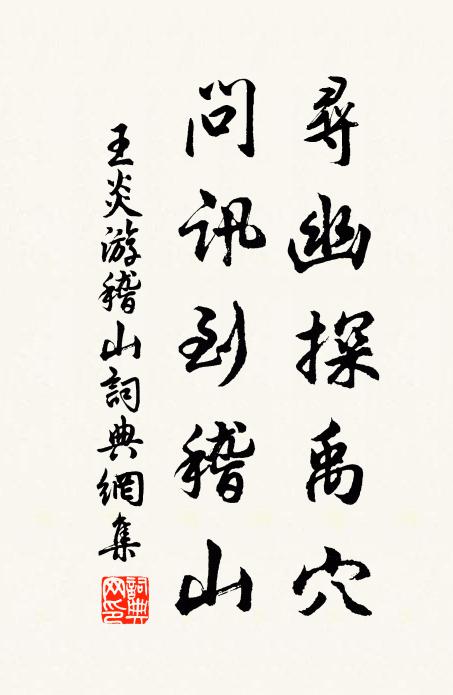 尋幽探禹穴
問訊到稽山
王炎游稽山詞典網集
詞典網印